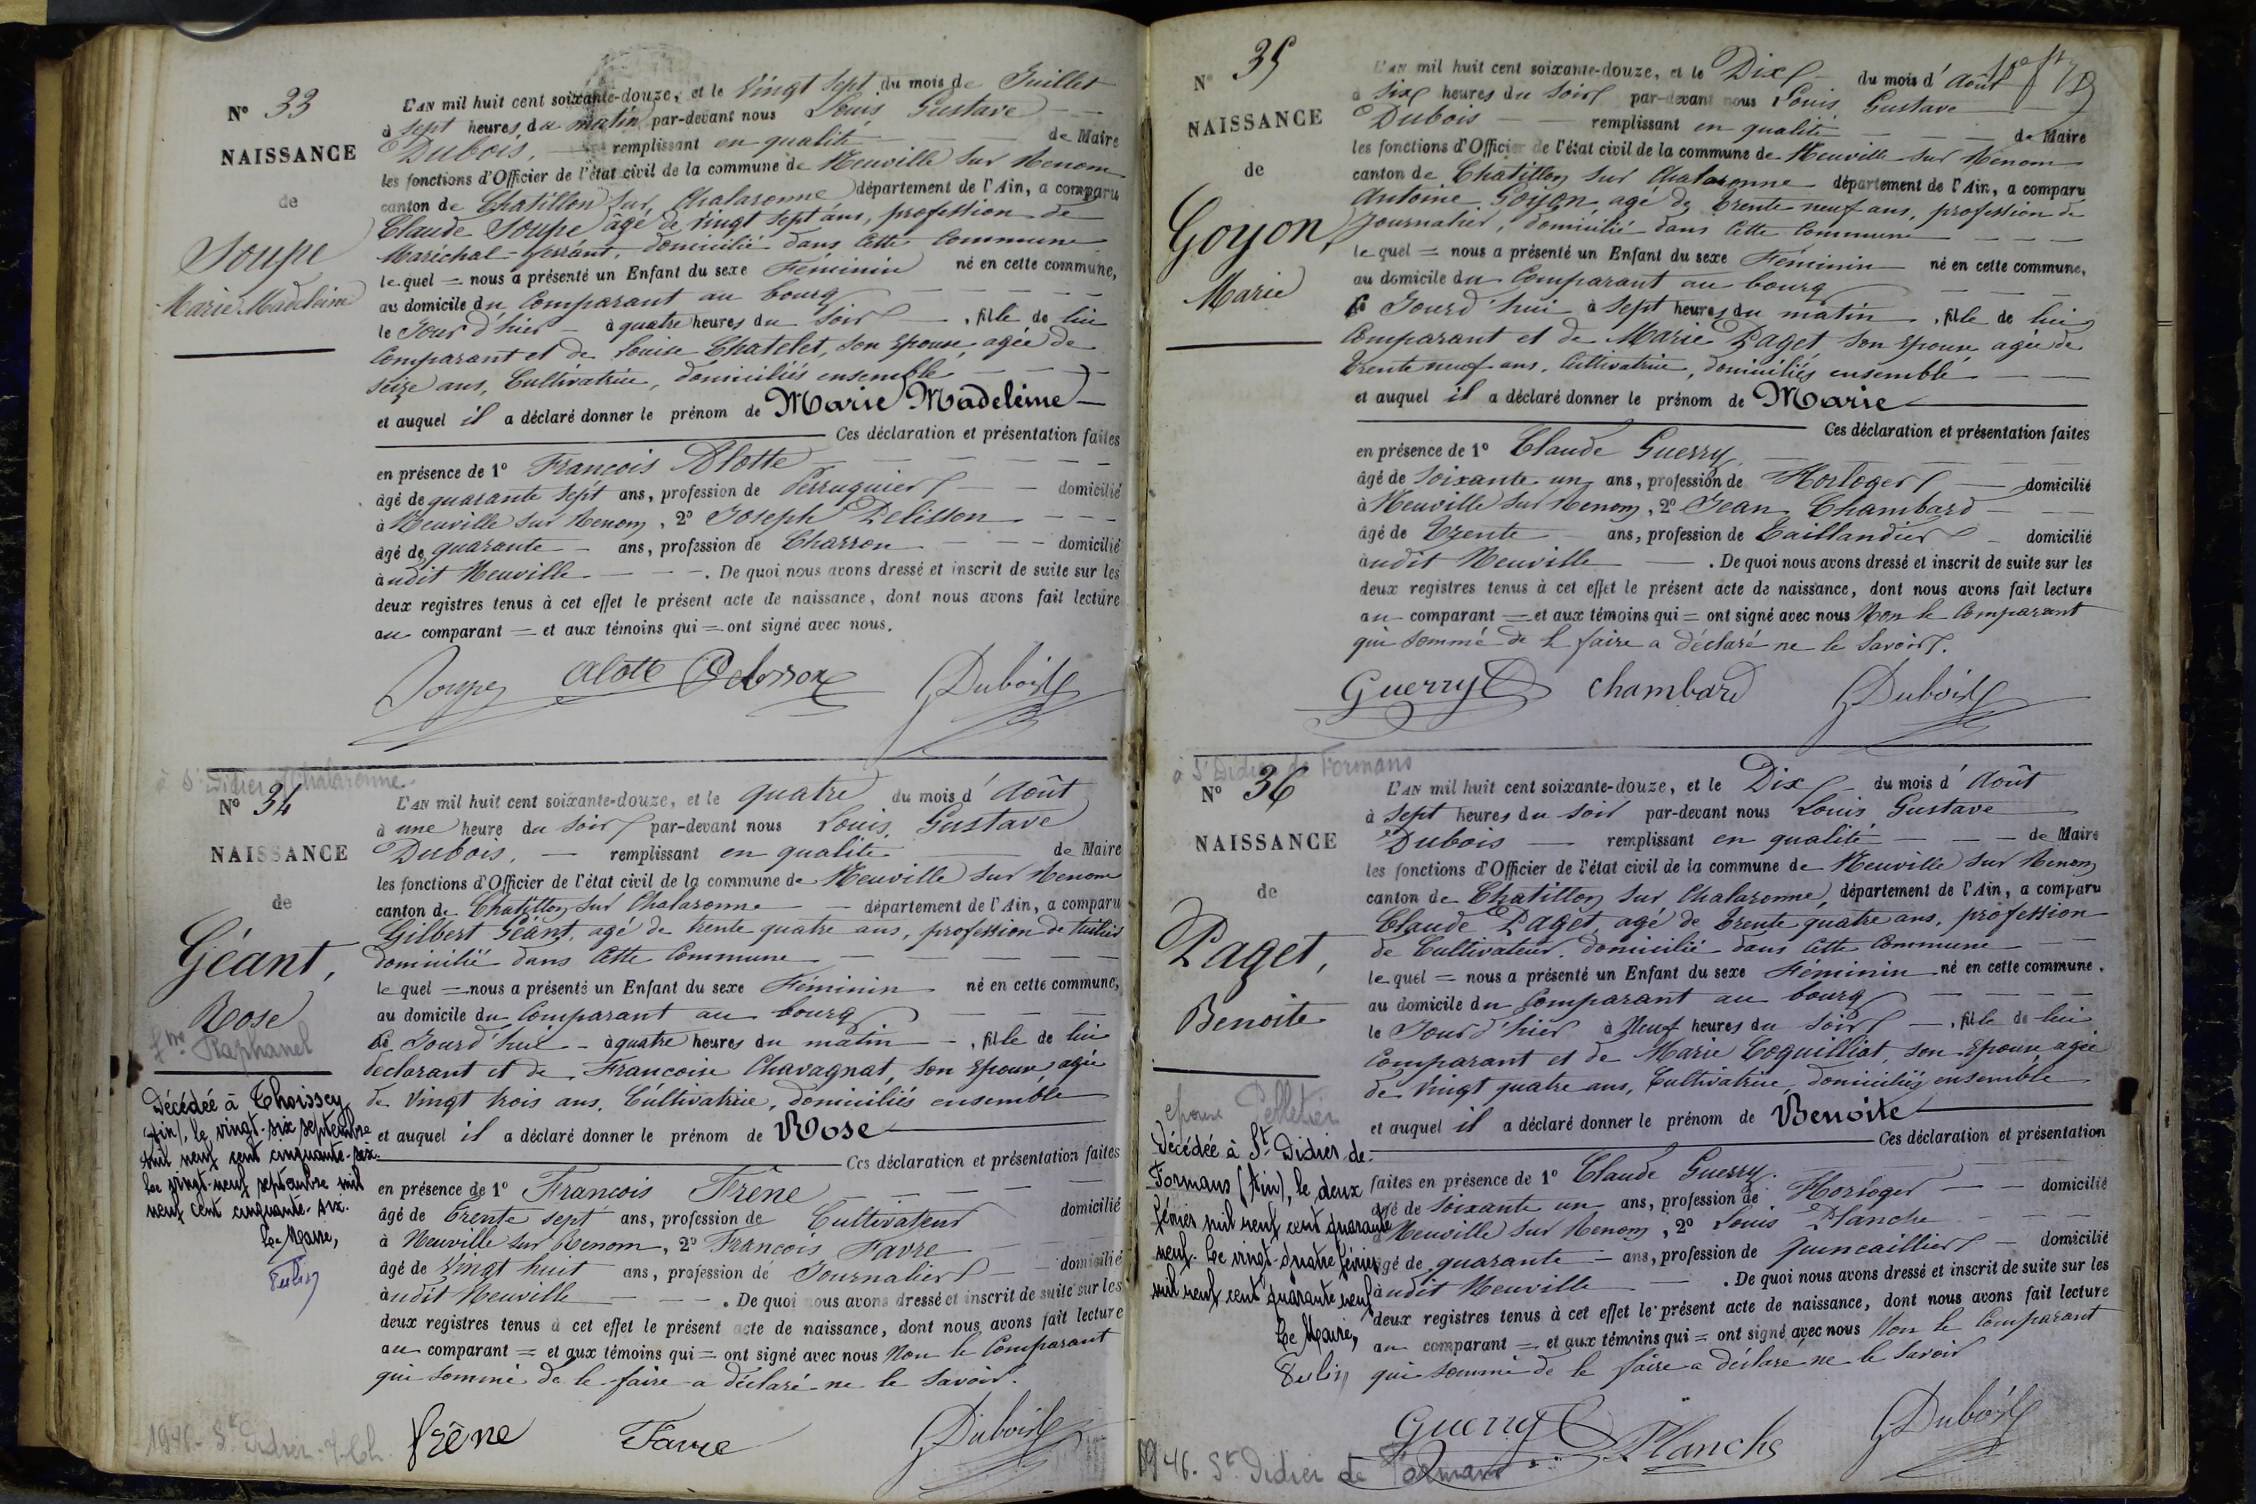 N° 33
NAISSANCE
de
Soupe
Marie Madeleine
L'AN mil huit cent soixante-douze, et le Vingt Sept du mois de Juillet
à sept heures du matin par-devant nous Louis Gustave
Dubois, remplissant en qualité de Maire
les fonctions d'Officier de l'état civil de la commune de Neuville sur Renom
canton de Chatillon sur Chalaronne département de l'Ain, a comparu
Claude Soupe âgé de vingt sept ans, profession de
Maréchal-ferrant, domicilié dans cette Commune
le quel = nous a présenté un Enfant du sexe Féminin né en cette commune,
au domicile du Comparant au bourg
le Jour d'hier à quatre heures du Soir, fille de lui
Comparant et de Louise Chatelet, son Epouse, agée de
seize ans, Cultivatrice, domiciliés ensemble
et auquel il a déclaré donner le prénom de Marie Madeleine
Ces déclaration et présentation faites
en présence de 1° François Alotte
âgé de quarante sept ans, profession de Perruquier domicilié
à Neuville sur Renom, 2° Joseph Pelisson
âgé de quarante ans, profession de Charron domicilié
à udit Neuville. De quoi nous avons dressé et inscrit de suite sur les
deux registres tenus à cet effet le présent acte de naissance, dont nous avons fait lecture
au comparant = et aux témoins qui = ont signé avec nous.
Soupe Alotte Pelisson Dubois
à St Didier s/ Chalaronne
N° 34
NAISSANCE
de
Géant,
Rose
fme Raphanel
Décédée à Thoissey
(Ain), le vingt-six septembre
mil neuf cent cinquante-six.
Le vingt-neuf septembre mil
neuf cent cinquante-six.
Le Maire,
L'AN mil huit cent soixante-douze, et le quatre du mois d'Août
à une heure du Soir par-devant nous Louis Gustave
Dubois, remplissant en qualité de Maire
les fonctions d'Officier de l'état civil de la commune de Neuville sur Renom
canton de Chatillon sur Chalaronne département de l'Ain, a comparu
Gilbert Géant, agé de trente quatre ans, profession de Tuilier
domicilié dans cette Commune
le quel = nous a présenté un Enfant du sexe Féminin né en cette commune,
au domicile du Comparant au bourg
Ce Jourd'hui à quatre heures du matin, fille de lui
declarant et de Françoise Chavagnat, son Epouse agée
de Vingt trois ans, Cultivatrice, domiciliés ensemble
et auquel il a déclaré donner le prénom de Rose
Ces déclaration et présentation faites
en présence de 1° François Frêne
âgé de trente sept ans, profession de Cultivateur domicilié
à Neuville sur Renom, 2° François Favre
âgé de vingt huit ans, profession de Journalier domicilié
à udit Neuville. De quoi nous avons dressé et inscrit de suite sur les
deux registres tenus à cet effet le présent acte de naissance, dont nous avons fait lecture
au comparant = et aux témoins qui = ont signé avec nous Non le Comparant
qui sommé de le faire a déclaré ne le Savoir.
frêne Favre Dubois
1946. St Didier s/ Ch.
N° 35
NAISSANCE
de
Goyon,
Marie
L'AN mil huit cent soixante-douze, et le Dix du mois d'Août
à Six heures du Soir par-devant nous Louis Gustave
Dubois remplissant en qualité de Maire
les fonctions d'Officier de l'état civil de la commune de Neuville sur Renom
canton de Chatillon sur Chalaronne département de l'Ain, a comparu
Antoine Goyon agé de trente neuf ans, profession de
Journalier, domicilié dans cette Commune
le quel = nous a présenté un Enfant du sexe Féminin né en cette commune,
au domicile du Comparant au bourg
Ce Jourd'hui à sept heures du matin, fille de lui
Comparant et de Marie Paget son Epouse agée de
trente neuf ans, Cultivatrice, domiciliés ensemble
et auquel il a déclaré donner le prénom de Marie
Ces déclaration et présentation faites
en présence de 1° Claude Guerry
âgé de Soixante un ans, profession de Horloger domicilié
à Neuville sur Renom, 2° Jean Chambard
âgé de Trente ans, profession de Taillandier domicilié
à udit Neuville. De quoi nous avons dressé et inscrit de suite sur les
deux registres tenus à cet effet le présent acte de naissance, dont nous avons fait lecture
au comparant = et aux témoins qui = ont signé avec nous Non le Comparant
qui sommé de le faire a déclaré ne le Savoir.
Guerry Chambard Dubois
à St Didier de Formans
N° 36
NAISSANCE
de
Paget,
Benoite
épouse Pelletier
Décédée à St Didier de
Formans (Ain), le deux
février mil neuf cent quarante
neuf. Le vingt-quatre février
mil neuf cent quarante neuf
Le Maire,
L'AN mil huit cent soixante-douze, et le Dix du mois d'Août
à sept heures du soir par-devant nous Louis Gustave
Dubois remplissant en qualité de Maire
les fonctions d'Officier de l'état civil de la commune de Neuville sur Renom
canton de Chatillon sur Chalaronne, département de l'Ain, a comparu
Claude Paget, agé de trente quatre ans, profession
de Cultivateur, domicilié dans cette Commune
le quel = nous a présenté un Enfant du sexe Féminin né en cette commune,
au domicile du Comparant au bourg
le Jour d'hier à Neuf heures du Soir, fille de lui
Comparant et de Marie Coquilliat, son Epouse agée
de vingt quatre ans, Cultivatrice, domiciliés ensemble
et auquel il a déclaré donner le prénom de Benoite
Ces déclaration et présentation
faites en présence de 1° Claude Guerry
âgé de soixante un ans, profession de Horloger domicilié
à Neuville sur Renom, 2° Louis Planche
âgé de quarante ans, profession de quincaillier domicilié
à udit Neuville. De quoi nous avons dressé et inscrit de suite sur les
deux registres tenus à cet effet le présent acte de naissance, dont nous avons fait lecture
au comparant = et aux témoins qui = ont signé avec nous Non le Comparant
qui sommé de le faire a déclaré ne le Savoir
Guerry Planche Dubois
1946. St Didier de Formans